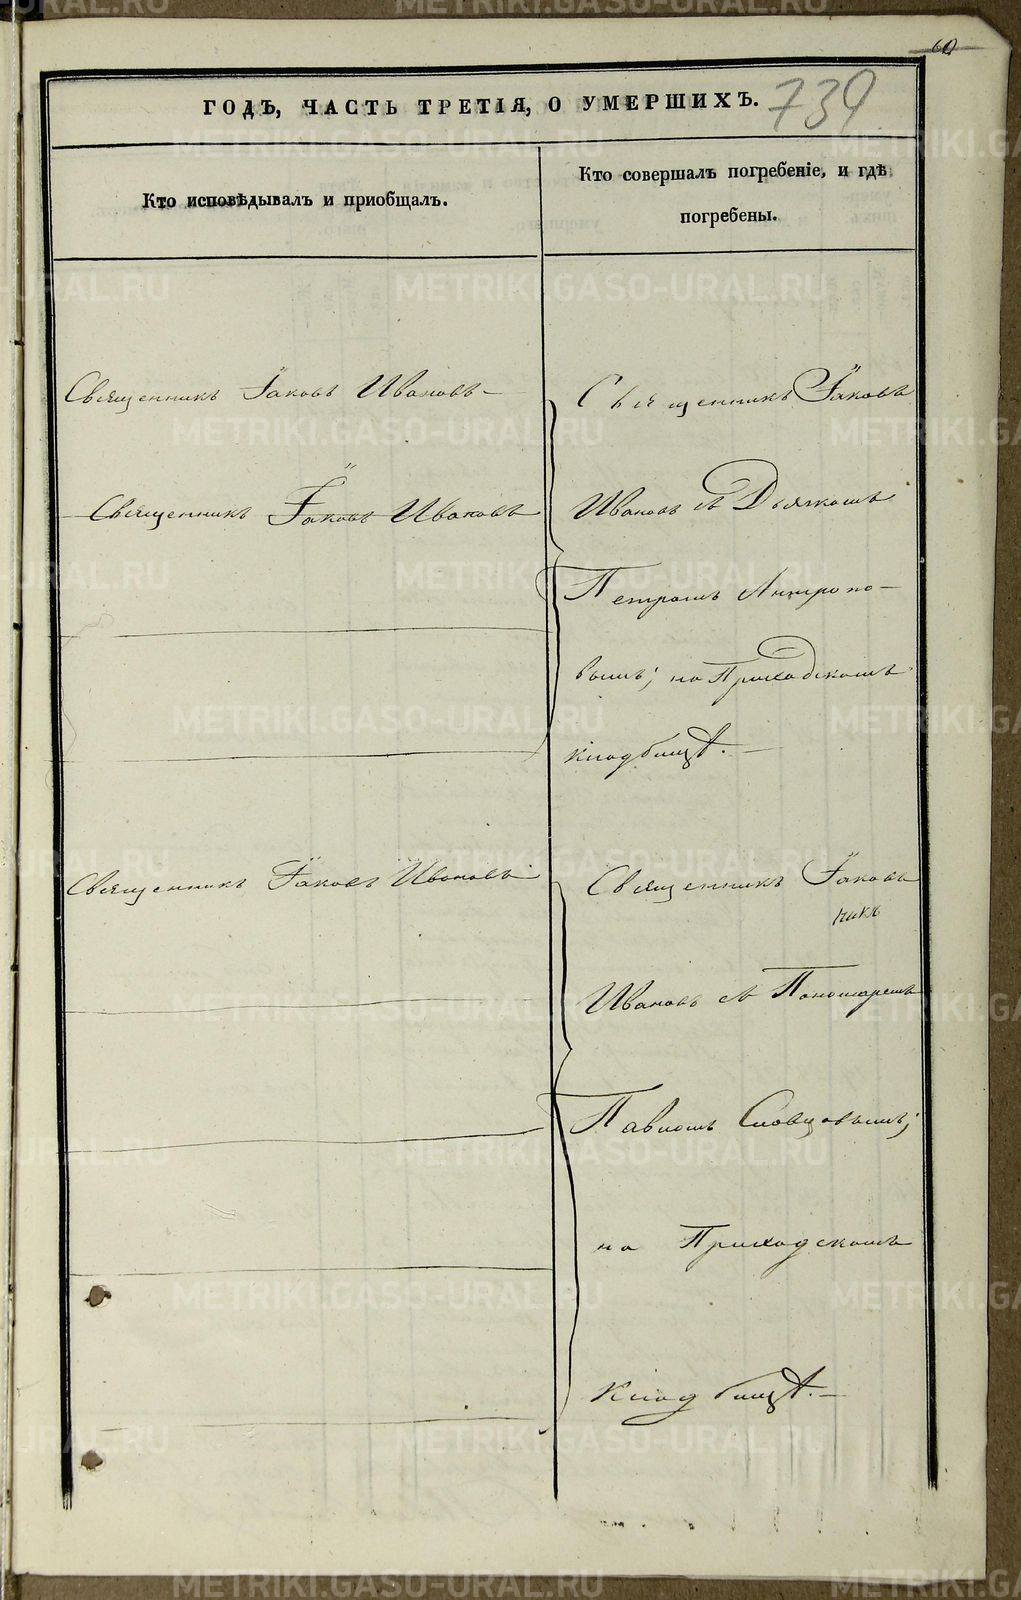 60
739
ГОДЪ, ЧАСТЬ ТРЕТІЯ, О УМЕРШИХЪ.
Кто исповѣдывалъ и приобщалъ.
Кто совершалъ погребеніе, и гдѣ
погребены.
Священникъ Іаковъ Ивановъ
Священникъ Іаковъ Ивановъ
Священникъ Іаковъ
Ивановъ съ Дьячкомъ
Петромъ Антропо-
вымъ; на Приходскомъ
кладбищѣ.
Священникъ Іаковъ Ивановъ
Священникъ Іаковъ
никъ
Ивановъ съ Пономаремъ
Павломъ Словцовымъ;
на Приходскомъ
кладбищѣ.
METRIKI.GASO-URAL.RU